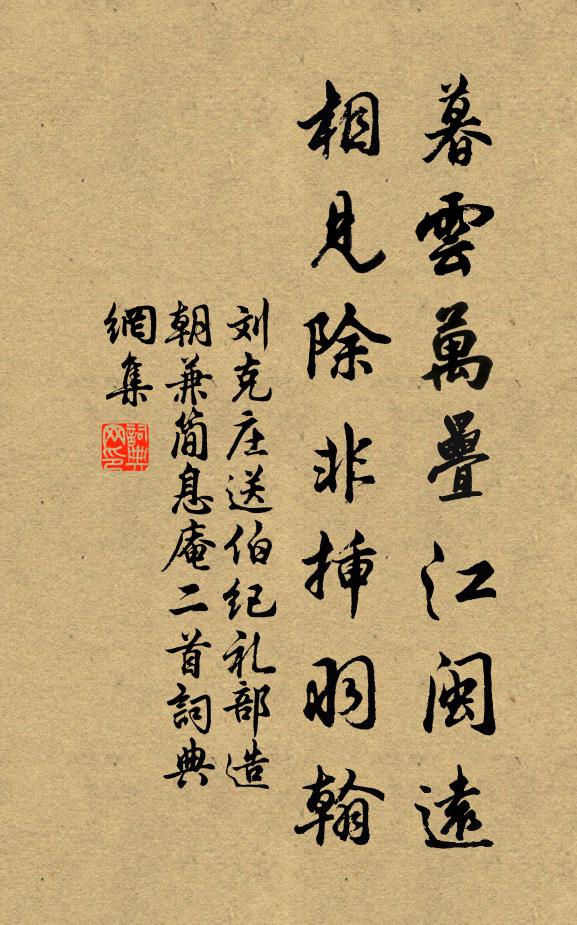 暮雲萬疊江閩遠
相見除非挿羽翰
刘克庄送伯纪礼部造
朝兼简息庵二首詞典
網集
詞典
网印